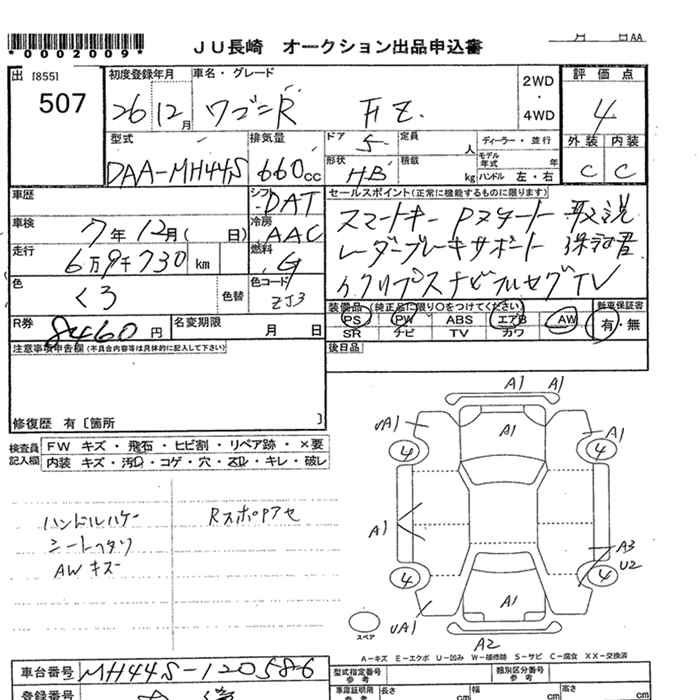 *0002009*
JU長崎 オークション出品申込書
月 日AA
出 [855]
507
初度登録年月
26 12月
車名・グレード
ワゴンR FZ.
2WD
・
4WD
評価点
4
外装 内装
C C
型式
DAA-MH44S
排気量
660cc
ドア
5
定員
人
形状
HB
積載
kg
ディーラー・並行
モデル年式 年
ハンドル 左・右
車歴
シフト
DAT
車検
7年12月( 日)
冷房
AAC
走行
6万9千730km
燃料
G
色
くろ
色替
色コード
ZJ3
R券
8460円
名変期限
月 日
セールスポイント(正常に機能するものに限ります)
スマートキー Pスタート 取説
レーダーブレーキサポート 保証書
イクリプスナビフルセグTV
装備品(純正品に限り○をつけてください)
PS PW ABS エアB AW
SR ナビ TV カワ
新車保証書
有・無
後日品
注意事項申告欄(不具合内容等は具体的に記入して下さい)
修復歴 有〔箇所 〕
検査員記入欄
FW キズ・飛石・ヒビ割・リペア跡・×要
内装 キズ・汚れ・コゲ・穴・スレ・キレ・破レ
ハンドルハゲ
シートヘタリ
AWキズ
RスポPアセ
A1 A1
UA1 A1 A1
4 4
A1
A3
U2
4 4
UA1 A1
A2
スペア
A－キズ E－エクボ U－凹み W－補修跡 S－サビ C－腐食 XX－交換済
車台番号
MH44S-120586
登録番号
型式指定番号
参考
類別区分番号
参考
車庫証明用
参考
長さ cm
幅 cm
高さ cm